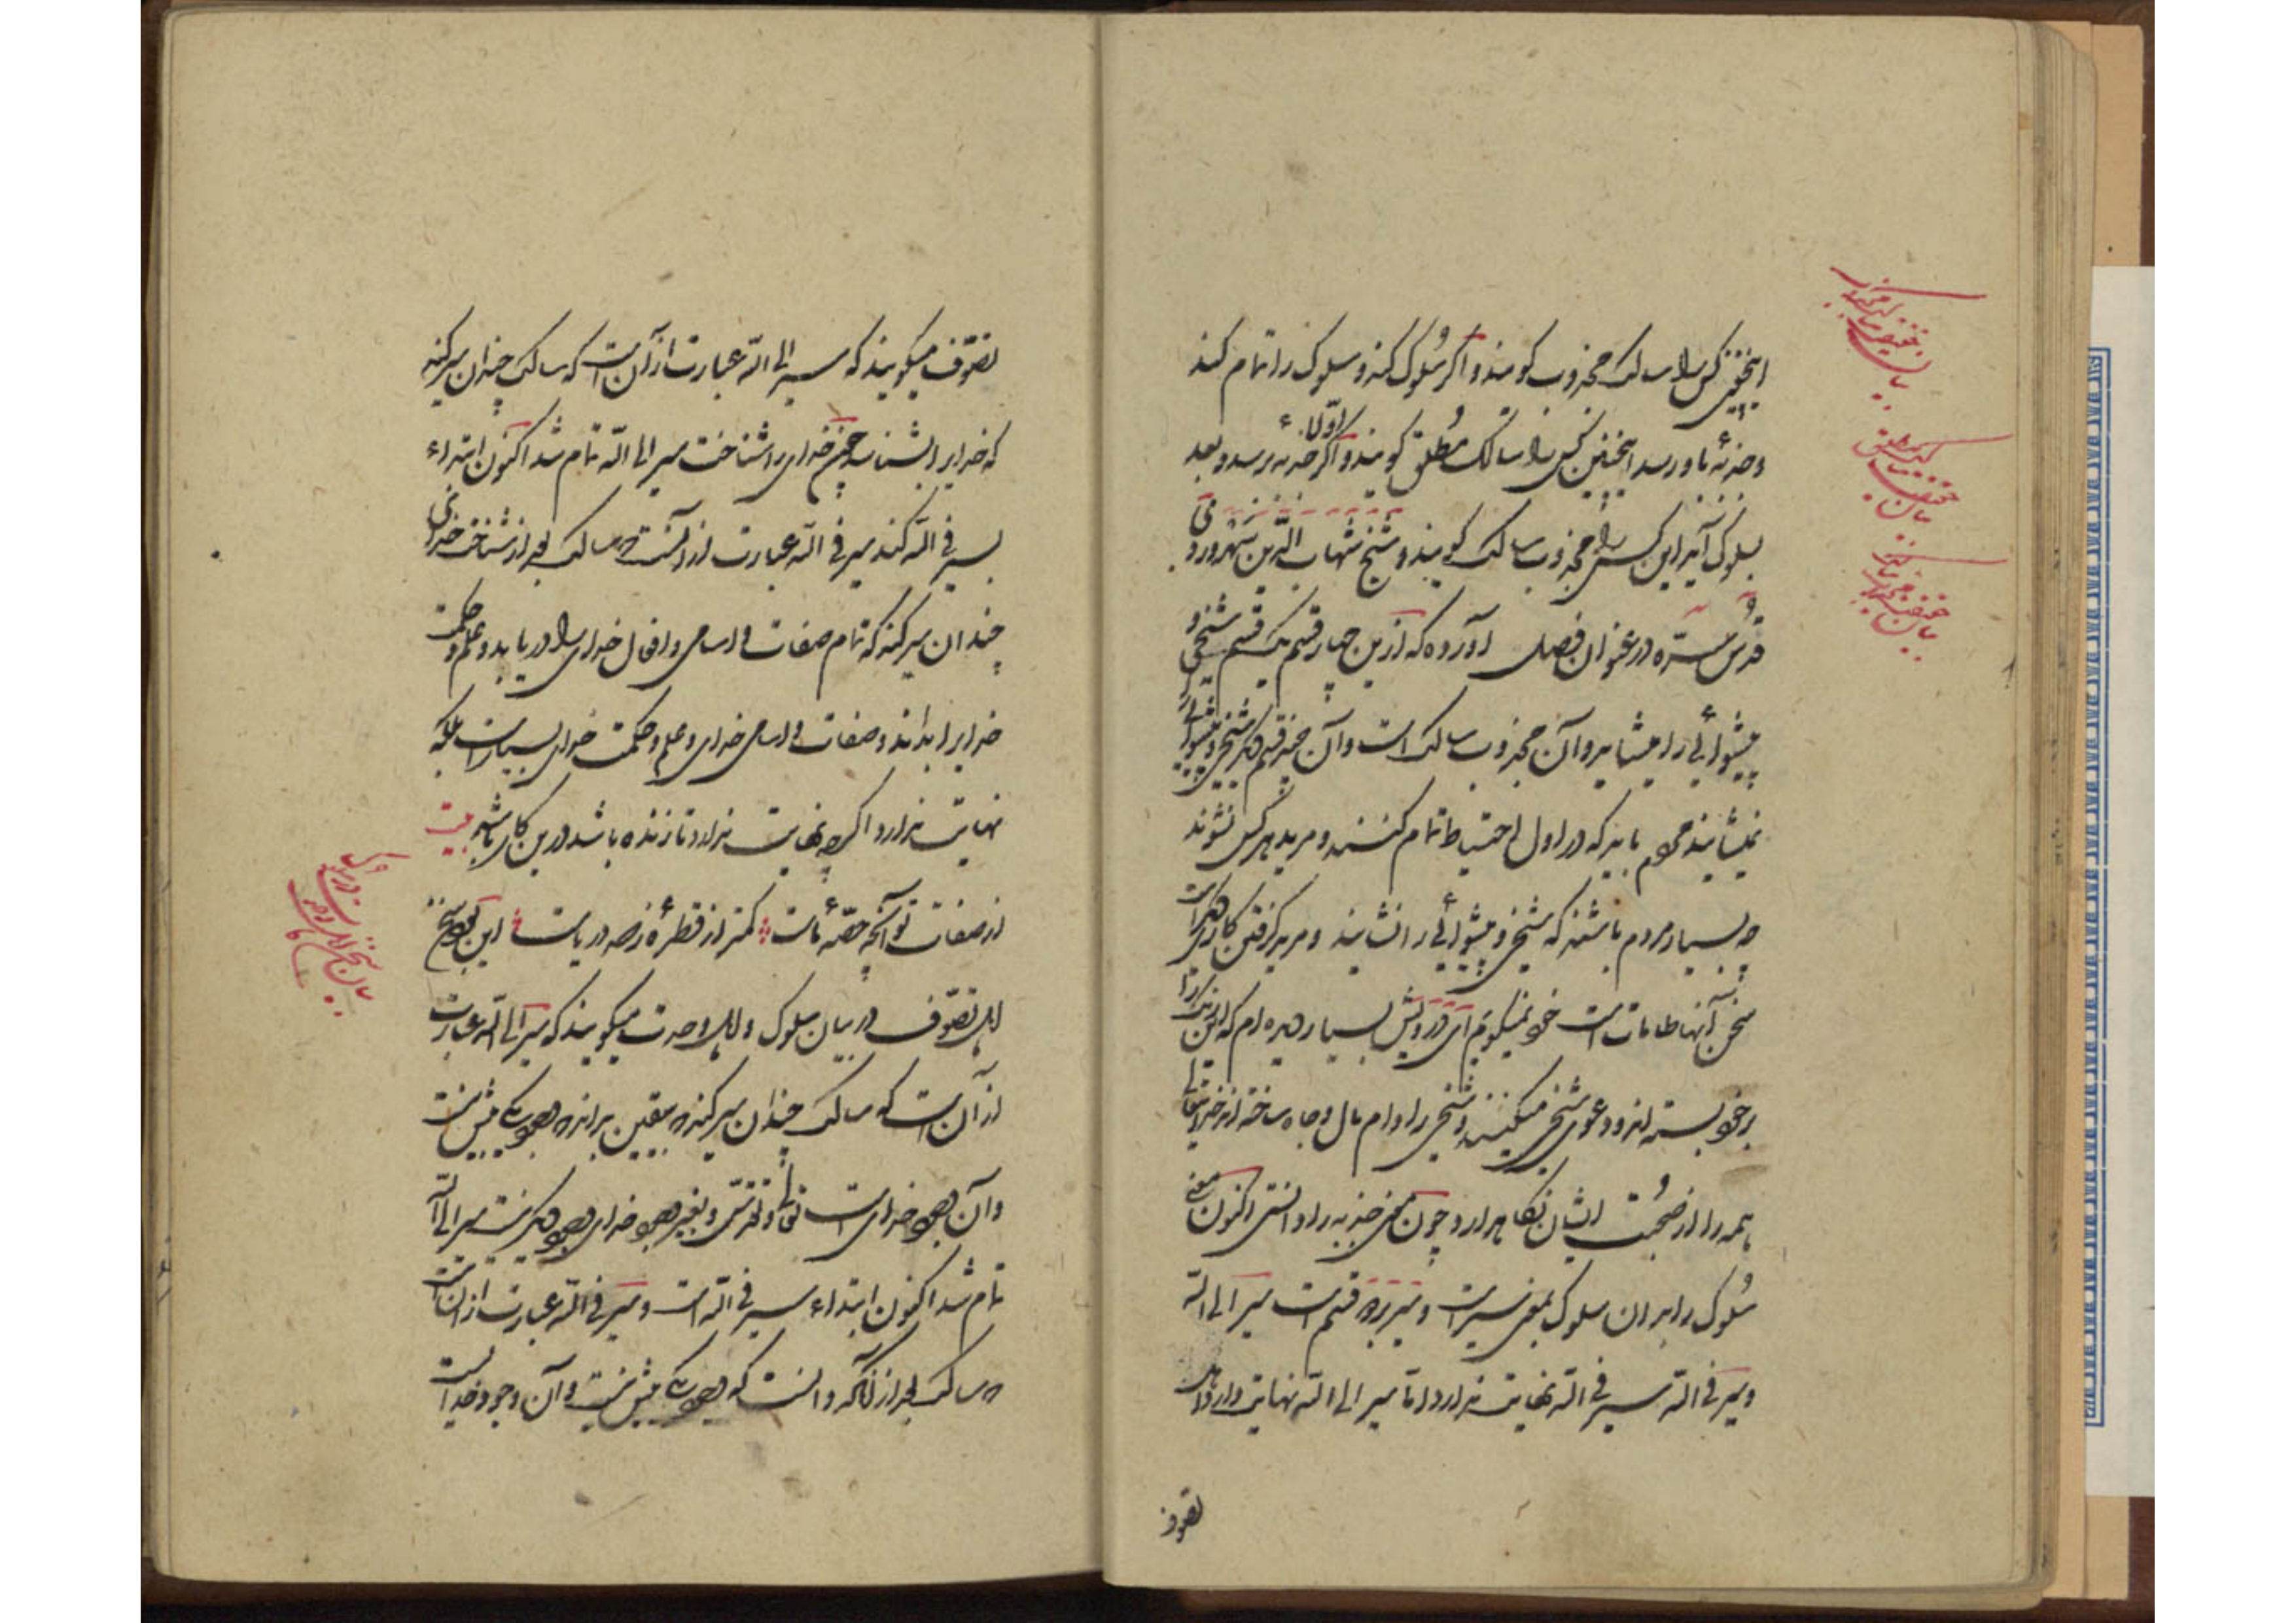 اینچنین کس را سالک مجذوب گویند و اگر سُلوک کند و سلوک را تمام کند
و جذبهٔ باو نرسد اینچنین کس را سالک مُطلق گویند و اگر اوّلا جذبه رسد و بعد
بسلوک آید این کس را مجذوب سالک گویند و شیخ شهاب الدّین سُهروردی
قُدّس سرّه در عنوان فصل آورده که ازین چهار قسم یک قسم شیخی و
پیشوائی را میشاید و آن مجذوب سالک است و آن سه قسم دیگر شیخی و پیشوائی را
نمیشایند محروم باید که در اول احتیاط تمام کنند و مرید هر کس نشوند
چه بسیار مردم باشند که شیخی و پیشوائی را نشایند و مرید گرفتن کار دیگر است
سخن آنها طامات است خود نمیگویم ای درویش بسیار دیده ام که این
بر خود بسته اند و دعوی شیخی میکنند و شیخی را دام مال و جاه ساخته اند خدایتعالی
همه را از صُحبت ایشان نگاه دارد و چون معنی جذبه را دانستی اکنون معنی
سُلوک را بدان سلوک بمعنی سیر است و سیر بر دو قسم است سیر الی اللّه
و سیر فی اللّه سیر فی اللّه نهایت ندارد اما سیر الی اللّه نهایت دارد اهل
تصوف
تصوّف میگویند که سیر الی اللّه عبارت از آن است که سالک چندان سیر کند
که خدایرا بشناسد چون خدای را شناخت سیر الی اللّه تمام شد اکنون ابتداء
سیر فی اللّه کند سیر فی اللّه عبارت از آنست که سالک بعد از شناخت خدای
چندان سیر کند که تمام صفات و اسامی و افعال خدای را دریابد و علم و حکمت
خدایرا بداند و صفات و اسامی خدای و علم و حکمت خدای بسیار است بلکه
نهایت ندارد اگرچه نهایت ندارد تا زنده باشد درین کار باشد بیت
از صفات تو آنچه حصّهٔ ماست کمتر از قطرهٔ ز صد دریاست این بود سخن
اهل تصوّف در بیان سلوک و اهل وحدت میگویند که سیر الی اللّه عبارت
از آن است که سالک چندان سیر کند که بیقین بداند که وجود یکی بیش نیست
و آن وجود خدای است تعالی و تقدّس و بغیر وجود خدای وجود دیگر نیست سیر الی اللّه
تمام شد اکنون ابتداء سیر فی اللّه است و سیر فی اللّه عبارت از آن است
که سالک بعد از آنکه دانست که وجود یکی بیش نیست و آن وجود خدا است